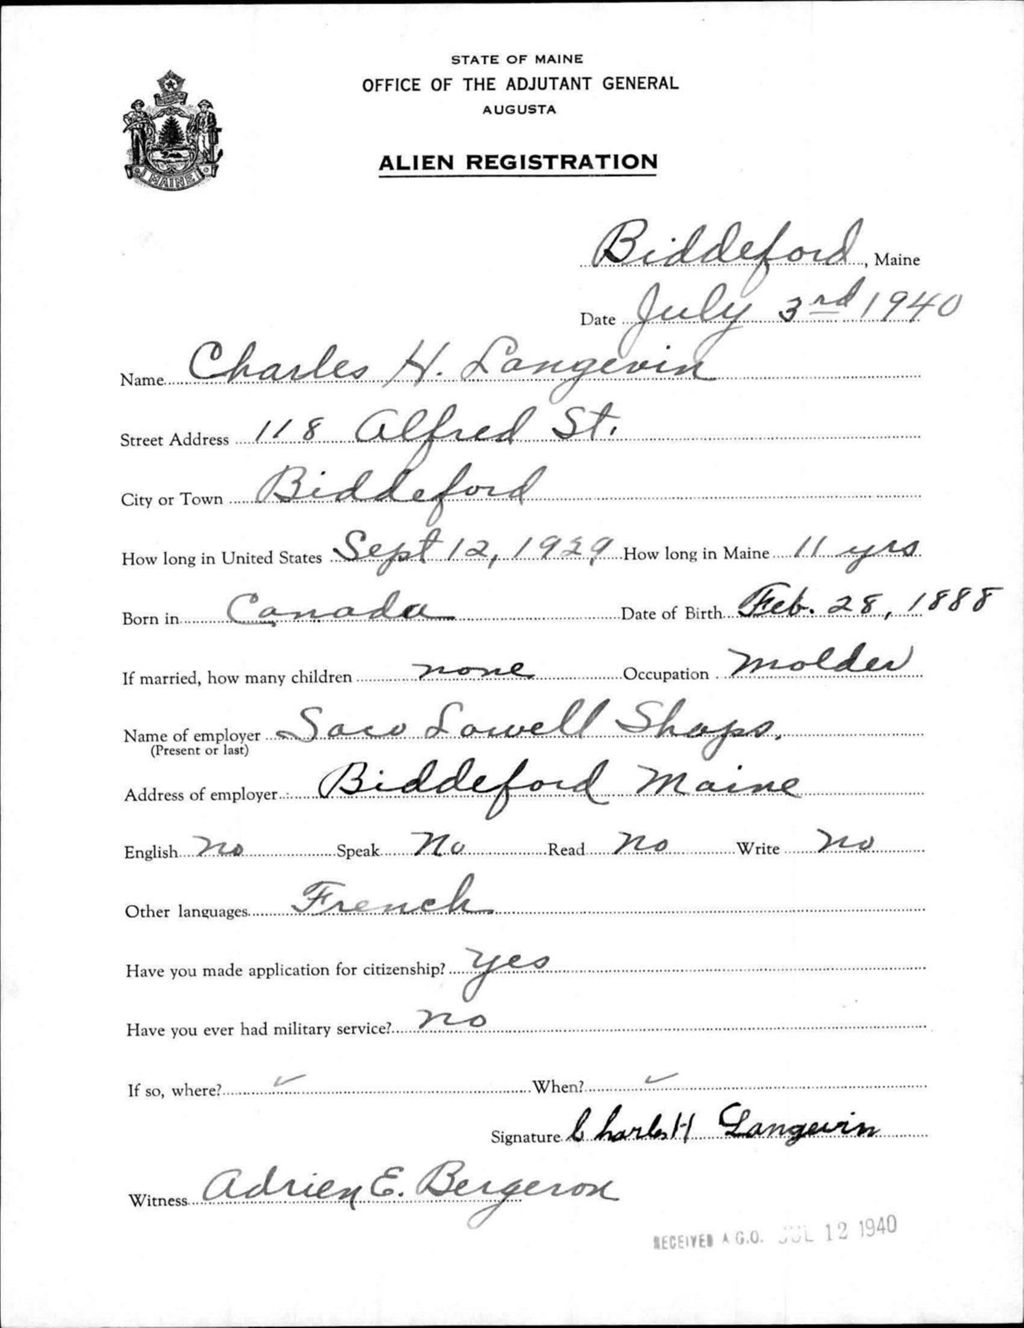 STATE OF MAINE
OFFICE OF THE ADJUTANT GENERAL
AUGUSTA
ALIEN REGISTRATION
MAINE
Biddeford, Maine
Date July 3rd 1940
Name Charles H. Langevin
Street Address 118 Alfred St.
City or Town Biddeford
How long in United States Sept 12, 1929 How long in Maine 11 yrs
Born in Canada Date of Birth Feb. 28, 1888
If married, how many children none Occupation Molder
Name of employer Saco Lowell Shops.
(Present or last)
Address of employer Biddeford Maine
English No Speak No Read No Write No
Other languages French
Have you made application for citizenship? Yes
Have you ever had military service? no
If so, where? When?
Signature Charles H Langevin
Witness Adrien E. Bergeron
RECEIVED A.G.O. JUL 12 1940